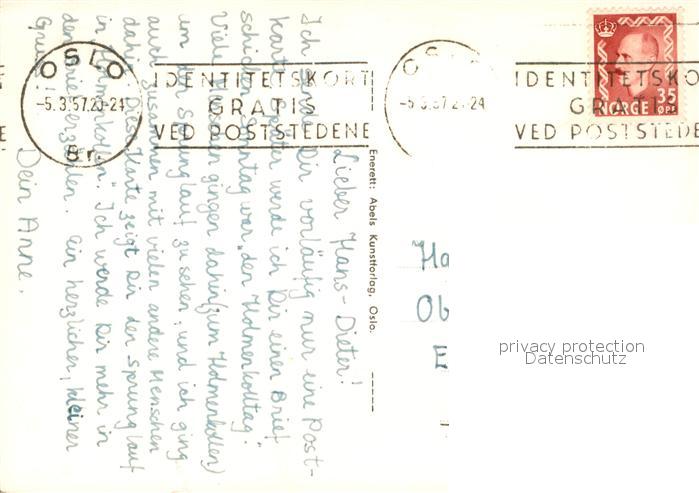 OSLO
-5.3.57.20-24
Br.
IDENTITETSKORT
GRATIS
VED POSTSTEDENE
OSLO
-5.3.57.20-24
IDENTITETSKO
GRATIS
VED POSTSTEDE
NORGE 35
ØRE
Enerett: Abels Kunstforlag, Oslo.
Lieber Hans-Dieter!
Ich sende Dir vorläufig nur eine Post-
karte, später werde ich Dir einen Brief
schicken. Sonntag war „den Holmenkolltag".
Viele Menschen gingen dahin (zum Holmenkollen)
um den Sprunglauf zu sehen, und ich ging
auch zusammen mit vielen andere Menschen
dahin. Diese Karte zeigt Dir den Sprunglauf
in „Holmenkollen". Ich werde Dir mehr in
dem Brief erzählen. Ein herzlicher, kleiner
Gruss!
Dein Anne.
Ha
Ob
E
privacy protection
Datenschutz